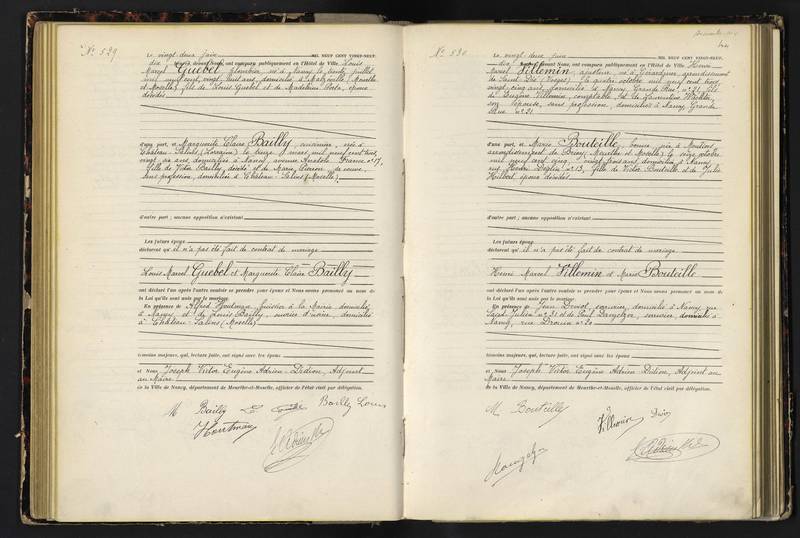 N° 529
Le vingt deux juin MIL NEUF CENT VINGT-NEUF
dix heures, devant Nous, ont comparu publiquement en l'Hôtel de Ville Louis
Marcel Guebel, plombier, né à Nancy le trente juillet
mil neuf cent, vingt huit ans, domicilié à Malzéville (Meurthe
et Moselle), fils de Louis Guebel et de Madeleine, époux
décédés
d'une part, et Marguerite Claire Bailly, cuisinière, née à
Château-Salins (Lorraine) le treize mars mil neuf cent trois,
vingt six ans, domiciliée à Nancy, avenue Anatole France n° 17,
fille de Victor Bailly, décédé et de Marie Pierson, sa veuve,
sans profession, domiciliée à Château-Salins (Moselle)
d'autre part ; aucune opposition n'existant
Les futurs époux
déclarent qu'il n'a pas été fait de contrat de mariage
Louis Marcel Guebel et Marguerite Claire Bailly
ont déclaré l'un après l'autre vouloir se prendre pour époux et Nous avons prononcé au nom de
la Loi qu'ils sont unis par le mariage.
En présence de Alfred Houtman, huissier à la Mairie, domicilié
à Nancy et de Louis Bailly, ouvrier d'usine, domicilié
à Château-Salins (Moselle)
témoins majeurs, qui, lecture faite, ont signé avec les époux
et Nous Joseph Victor Eugène Adrien Didion, Adjoint
au Maire
de la Ville de Nancy, département de Meurthe-et-Moselle, officier de l'état civil par délégation.
M Bailly
Bailly Louis
Houtman
N° 530
Le vingt deux juin MIL NEUF CENT VINGT-NEUF
dix heures, devant Nous, ont comparu publiquement en l'Hôtel de Ville Henri
Marcel Villemin, ajusteur, né à Gérardmer, arrondissement
de Saint-Dié (Vosges) le quatre octobre mil neuf cent trois,
vingt cinq ans, domicilié à Nancy, Grande Rue, n° 21, fils
de Eugène Villemin, comptable et de Clémentine
son épouse, sans profession, domiciliés à Nancy, Grande
Rue n° 21
d'une part, et Marie Bouteille, bonne, née à Moutiers
arrondissement de Briey (Meurthe et Moselle) le seize octobre
mil neuf cent cinq, vingt trois ans, domiciliée à Nancy,
rue Henri Déglin n° 13, fille de Victor Bouteille et de Julie
Hilbert, époux décédés
d'autre part ; aucune opposition n'existant
Les futurs époux
déclarent qu'il n'a pas été fait de contrat de mariage
Henri Marcel Villemin et Marie Bouteille
ont déclaré l'un après l'autre vouloir se prendre pour époux et Nous avons prononcé au nom de
la Loi qu'ils sont unis par le mariage.
En présence de Jean, serrurier, domicilié à Nancy, rue
Saint Julien n° 31 et de Paul, serrurier, domicilié à
Nancy, rue Drouin n° 20
témoins majeurs, qui, lecture faite, ont signé avec les époux
et Nous Joseph Victor Eugène Adrien Didion, Adjoint au
Maire
de la Ville de Nancy, département de Meurthe-et-Moselle, officier de l'état civil par délégation.
M Bouteille
Villemin